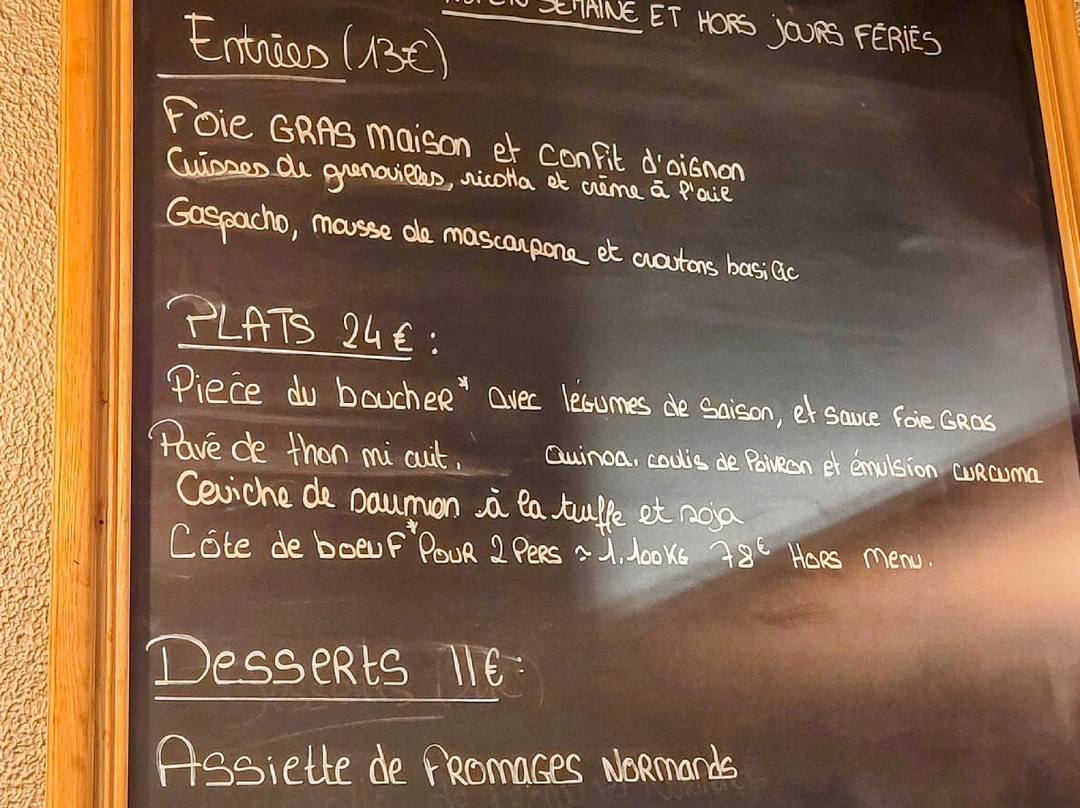 SEMAINE ET HORS JOURS FÉRIÉS
Entrées (13€)
Foie GRAS maison et confit d'oignon
Cuisses de grenouilles, ricotta et crème à l'ail
Gaspacho, mousse de mascarpone et croutons basilic
PLATS 24€ :
Pièce du boucher* avec légumes de saison, et sauce foie GRAS
Pavé de thon mi cuit, Quinoa, coulis de Poivron et émulsion curcuma
Ceviche de saumon à la truffe et soja
Côte de boeuf* POUR 2 PERS ≈ 1,100KG 78€ HORS Menu.
Desserts 11€:
Assiette de FROMAGES NORMANDS